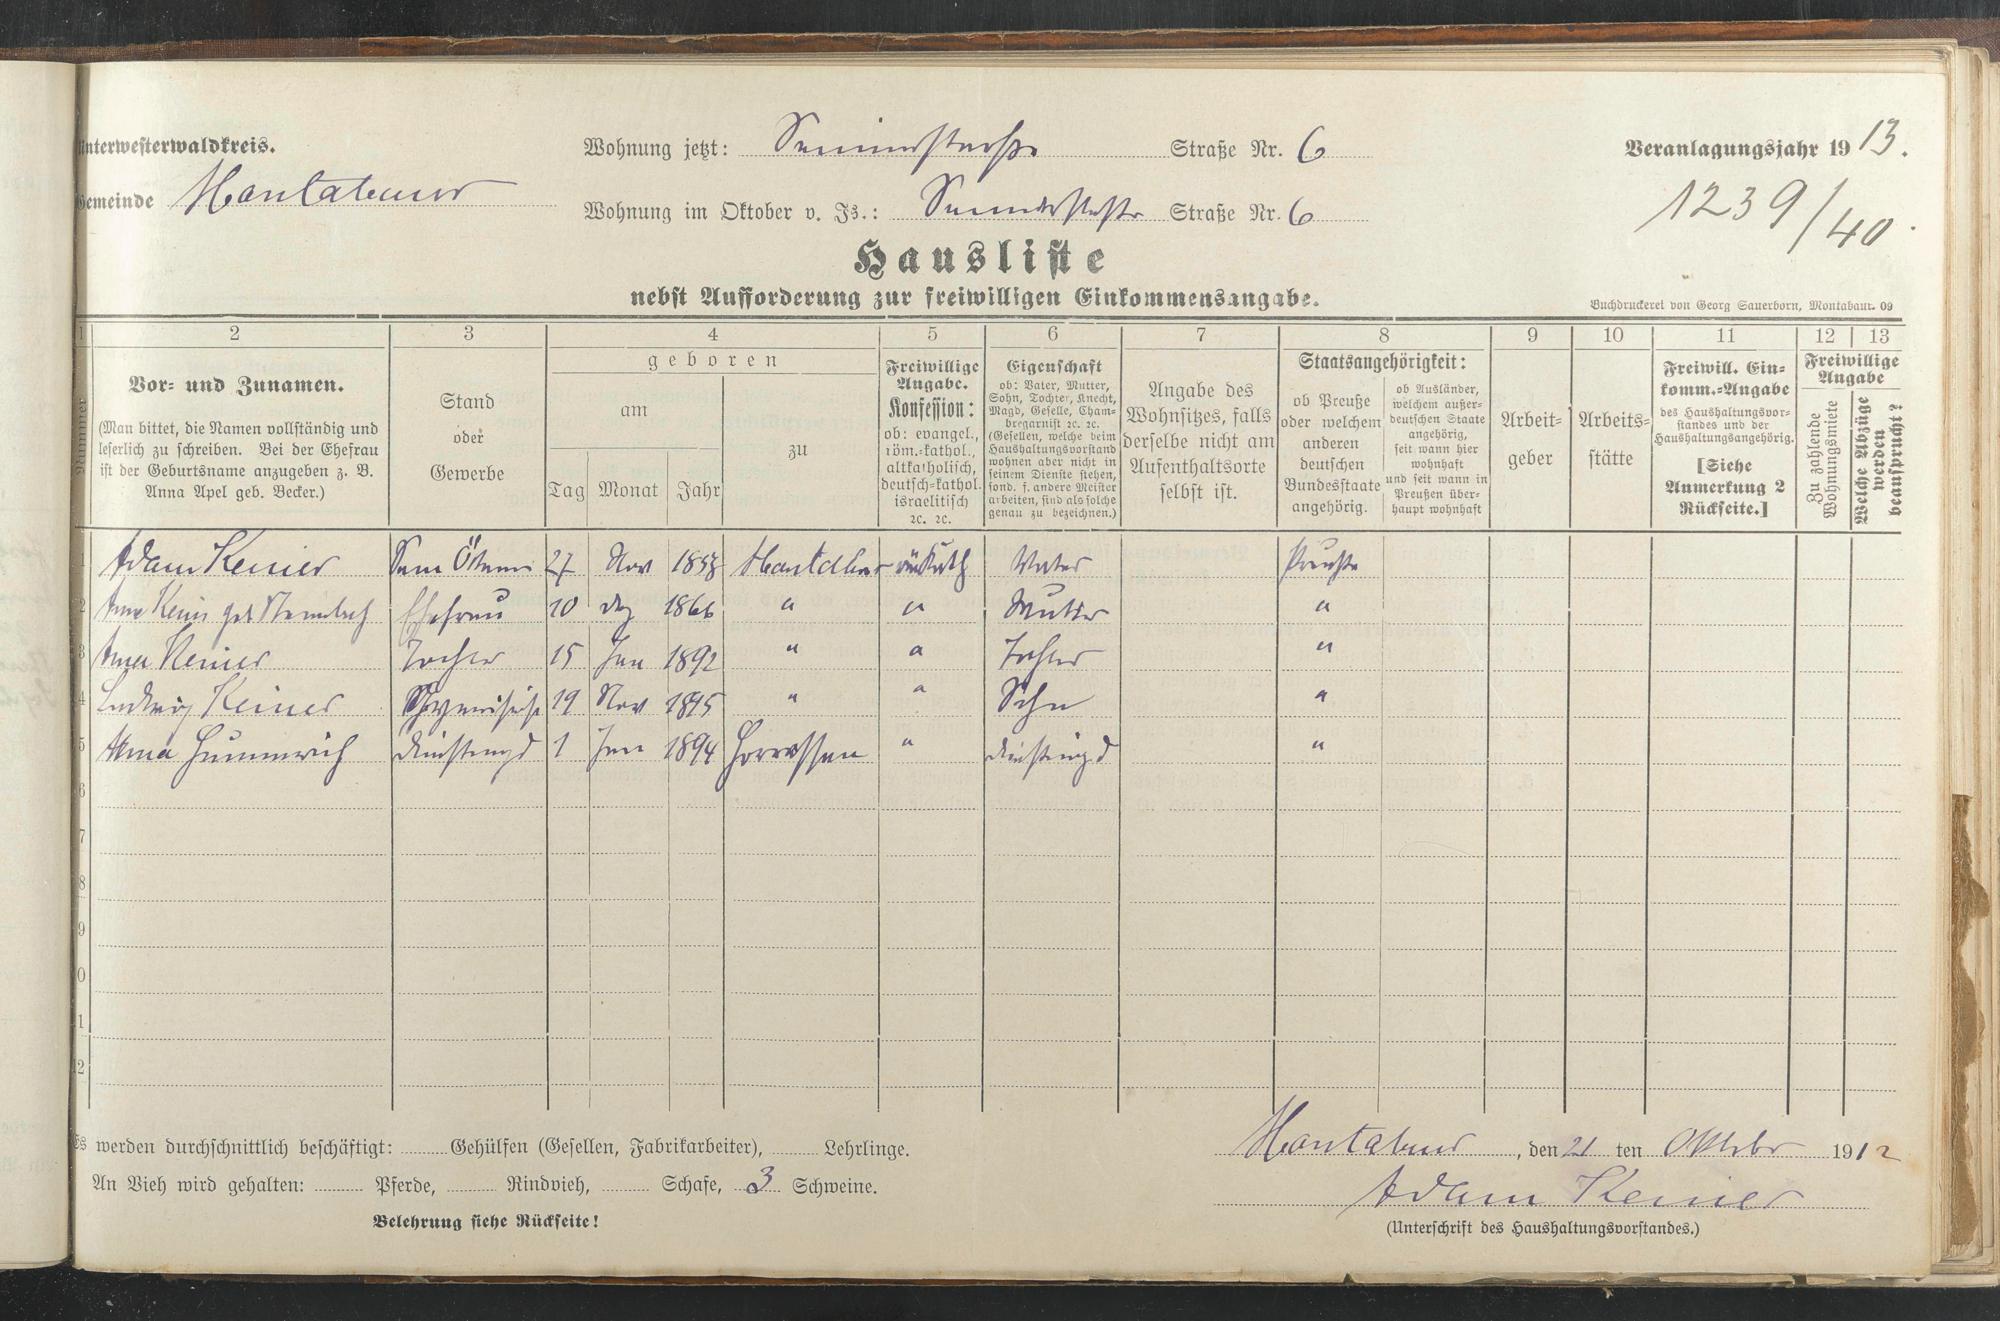 Unterwesterwaldkreis.
Gemeinde Montabaur
Wohnung jetzt: Straße Nr. 6
Wohnung im Oktober v. Js.: Straße Nr. 6
Veranlagungsjahr 1913.
1239/40
Hausliste
nebst Aufforderung zur freiwilligen Einkommensangabe.
Buchdruckerei von Georg Sauerborn, Montabaur. 09
1 2 3 4 5 6 7 8 9 10 11 12 13
Nummer
Vor- und Zunamen.
(Man bittet, die Namen vollständig und
leserlich zu schreiben. Bei der Ehefrau
ist der Geburtsname anzugeben z. B.
Anna Apel geb. Becker.)
Stand
oder
Gewerbe
geboren
am
Tag Monat Jahr
zu
Freiwillige
Angabe.
Konfession:
ob: evangel.,
röm.-kathol.,
altkatholisch,
deutsch-kathol.
israelitisch
ꝛc. ꝛc.
Eigenschaft
ob: Vater, Mutter,
Sohn, Tochter, Knecht,
Magd, Geselle, Cham-
bregarnist ꝛc. ꝛc.
(Gesellen, welche beim
Haushaltungsvorstand
wohnen aber nicht in
seinem Dienste stehen,
sond. f. andere Meister
arbeiten, sind als solche
genau zu bezeichnen.)
Angabe des
Wohnsitzes, falls
derselbe nicht am
Aufenthaltsorte
selbst ist.
Staatsangehörigkeit:
ob Preuße
oder welchem
anderen
deutschen
Bundesstaate
angehörig.
ob Ausländer,
welchem außer-
deutschen Staate
angehörig,
seit wann hier
wohnhaft
und seit wann in
Preußen über-
haupt wohnhaft
Arbeit-
geber
Arbeits-
stätte
Freiwill. Ein-
komm.-Angabe
des Haushaltungsvor-
standes und der
Haushaltungsangehörig.
[Siehe
Anmerkung 2
Rückseite.]
Freiwillige
Angabe
Zu zahlende
Wohnungsmiete
Welche Abzüge
werden
beansprucht?
1 Adam Keiner 27 Nov Montabaur Vater Preuße
2 geb Ehefrau 10 Dez 1866 " " Mutter "
3 Anna Keiner Tochter 15 Jan 1892 " " Tochter "
4 Ludwig Keiner 19 Nov 1895 " " Sohn "
5 Anna Hümmerich Dienstmagd 1 1894 Horressen " Dienstmagd "
6
7
8
9
10
11
12
Es werden durchschnittlich beschäftigt: Gehülfen (Gesellen, Fabrikarbeiter), Lehrlinge.
An Vieh wird gehalten: Pferde, Rindvieh, Schafe, 3 Schweine.
Belehrung siehe Rückseite!
Montabaur, den 21 ten Oktober 1912
Adam Keiner
(Unterschrift des Haushaltungsvorstandes.)